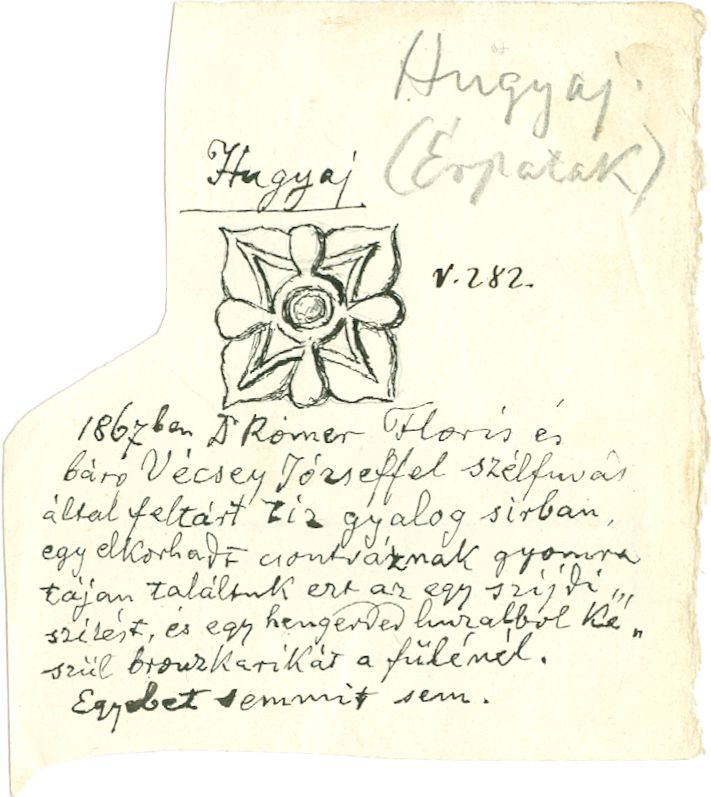 Hugyaj.
(Érpatak)
Hugyaj
V. 282.
1867ben Dr Rómer Floris és
báro Vécsey Józseffel szélfuvás
által feltárt tiz gyalog sirban,
egy elkorhadt csontváznak gyomra
táján találtuk ezt az egy szijdi„
szitést, és egy hengerded huzalbol ké„
szül bronzkarikát a fülénél.
Egyebet semmit sem.